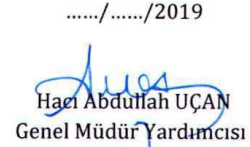 ....../....../2019
Hacı Abdullah UÇAN
Genel Müdür Yardımcısı